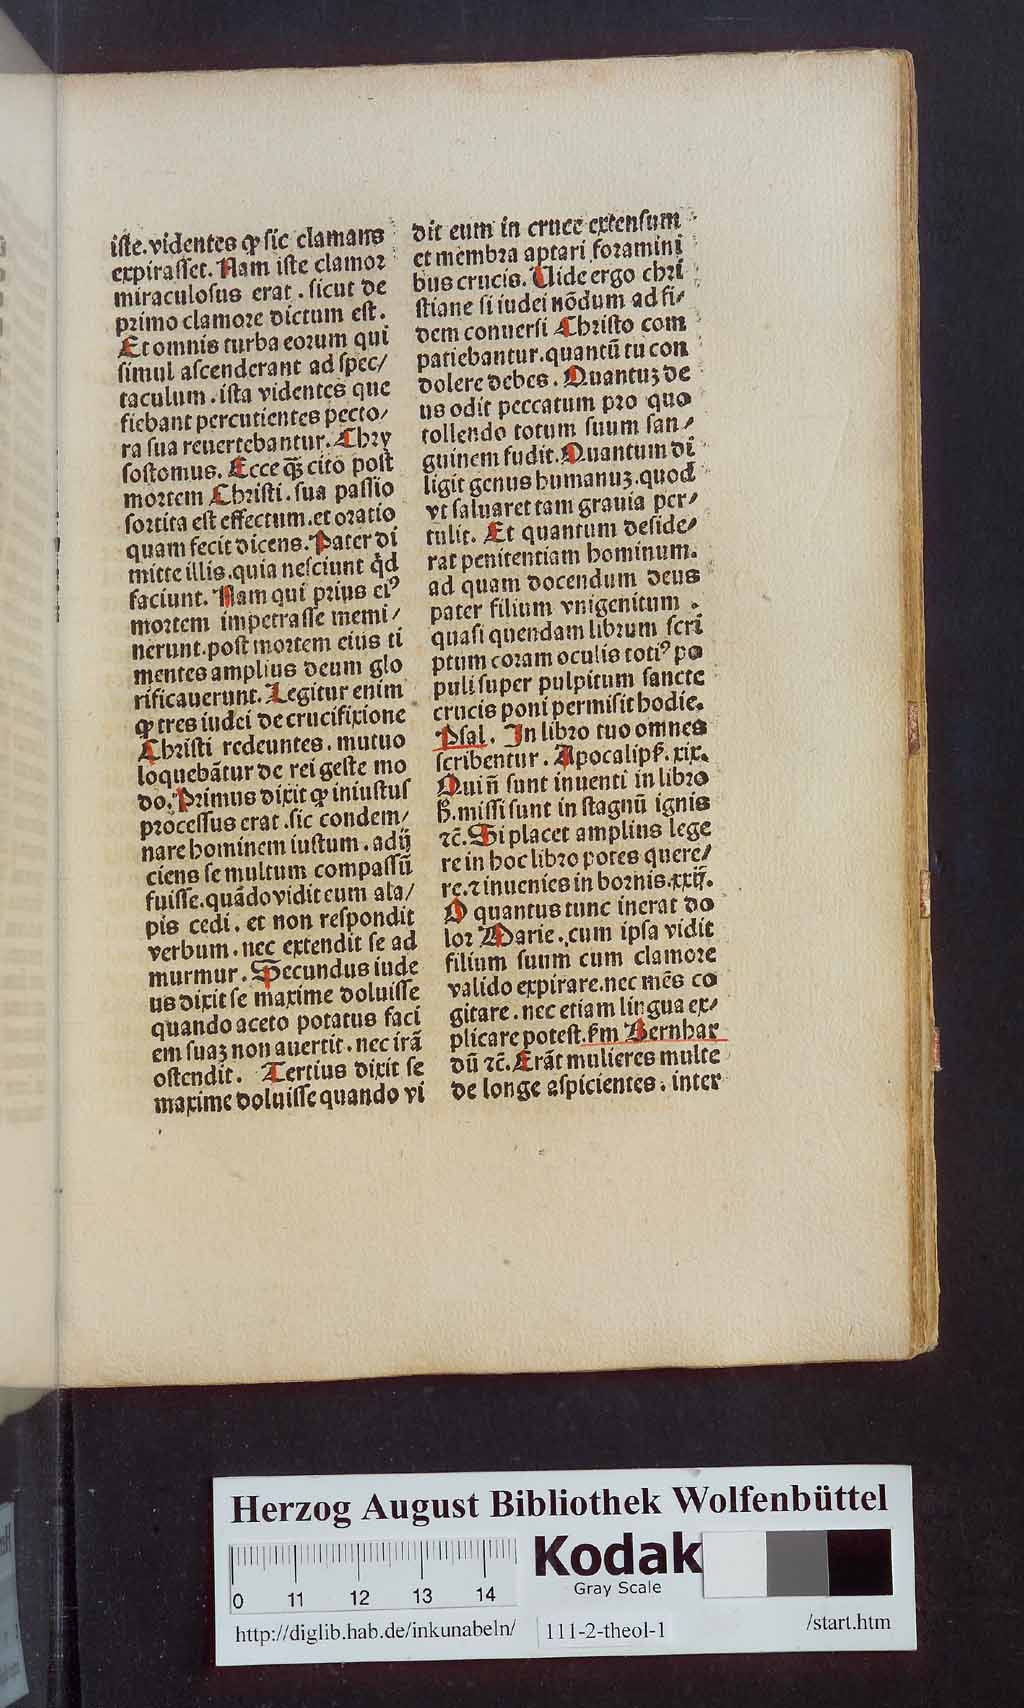 iste. videntes ꝙ sic clamans
expirasset. Nam iste clamor
miraculosus erat. sicut de
primo clamore dictum est.
Et omnis turba eorum qui
simul ascenderant ad spec/
taculum. ista videntes que
fiebant percutientes pecto/
ra sua reuertebantur. Chry
sostomus. Ecce qȝ cito post
mortem Christi. sua passio
sortita est effectum. et oratio
quam fecit dicens. Pater di
mitte illis. quia nesciunt qd
faciunt. Nam qui prius eiꝰ
mortem impetrasse memi/
nerunt. post mortem eius ti
mentes amplius deum glo
rificauerunt. Legitur enim
ꝙ tres iudei de crucifixione
Christi redeuntes. mutuo
loquebātur de rei geste mo
do. Primus dixit ꝙ iniustus
processus erat. sic condem/
nare hominem iustum. adij
ciens se multum compassū
fuisse. quādo vidit eum ala/
pis cedi. et non respondit
verbum. nec extendit se ad
murmur. Secundus iude
us dixit se maxime doluisse
quando aceto potatus faci
em suaȝ non auertit. nec irā
ostendit. Tertius dixit se
maxime doluisse quando vi
dit eum in cruce extensum
et membra aptari foramini
bus crucis. Vide ergo chri
stiane si iudei nōdum ad fi/
dem conuersi Christo com
patiebantur. quantū tu con
dolere debes. Quantuȝ de
us odit peccatum pro quo
tollendo totum suum san/
guinem fudit. Quantum di
ligit genus humanuȝ. quod
vt saluaret tam grauia per/
tulit. Et quantum deside/
rat penitentiam hominum.
ad quam docendum deus
pater filium vnigenitum.
quasi quendam librum scri
ptum coram oculis totiꝰ po
puli super pulpitum sancte
crucis poni permisit hodie.
Psal. In libro tuo omnes
scribentur. Apocalipß. xix.
Qui n̄ sunt inuenti in libro
h̄. missi sunt in stagnū ignis
⁊c̄. Si placet amplius lege
re in hoc libro potes quere/
re. ⁊ inuenies in hornis. xxij.
O quantus tunc inerat do
lor Marie. cum ipsa vidit
filium suum cum clamore
valido expirare. nec mēs co
gitare. nec etiam lingua ex/
plicare potest. ẜm Bernhar
dū ⁊c̄. Erāt mulieres multe
de longe aspicientes. inter
Herzog August Bibliothek Wolfenbüttel
Kodak
Gray Scale
0 11 12 13 14
http://diglib.hab.de/inkunabeln/ 111-2-theol-1 /start.htm